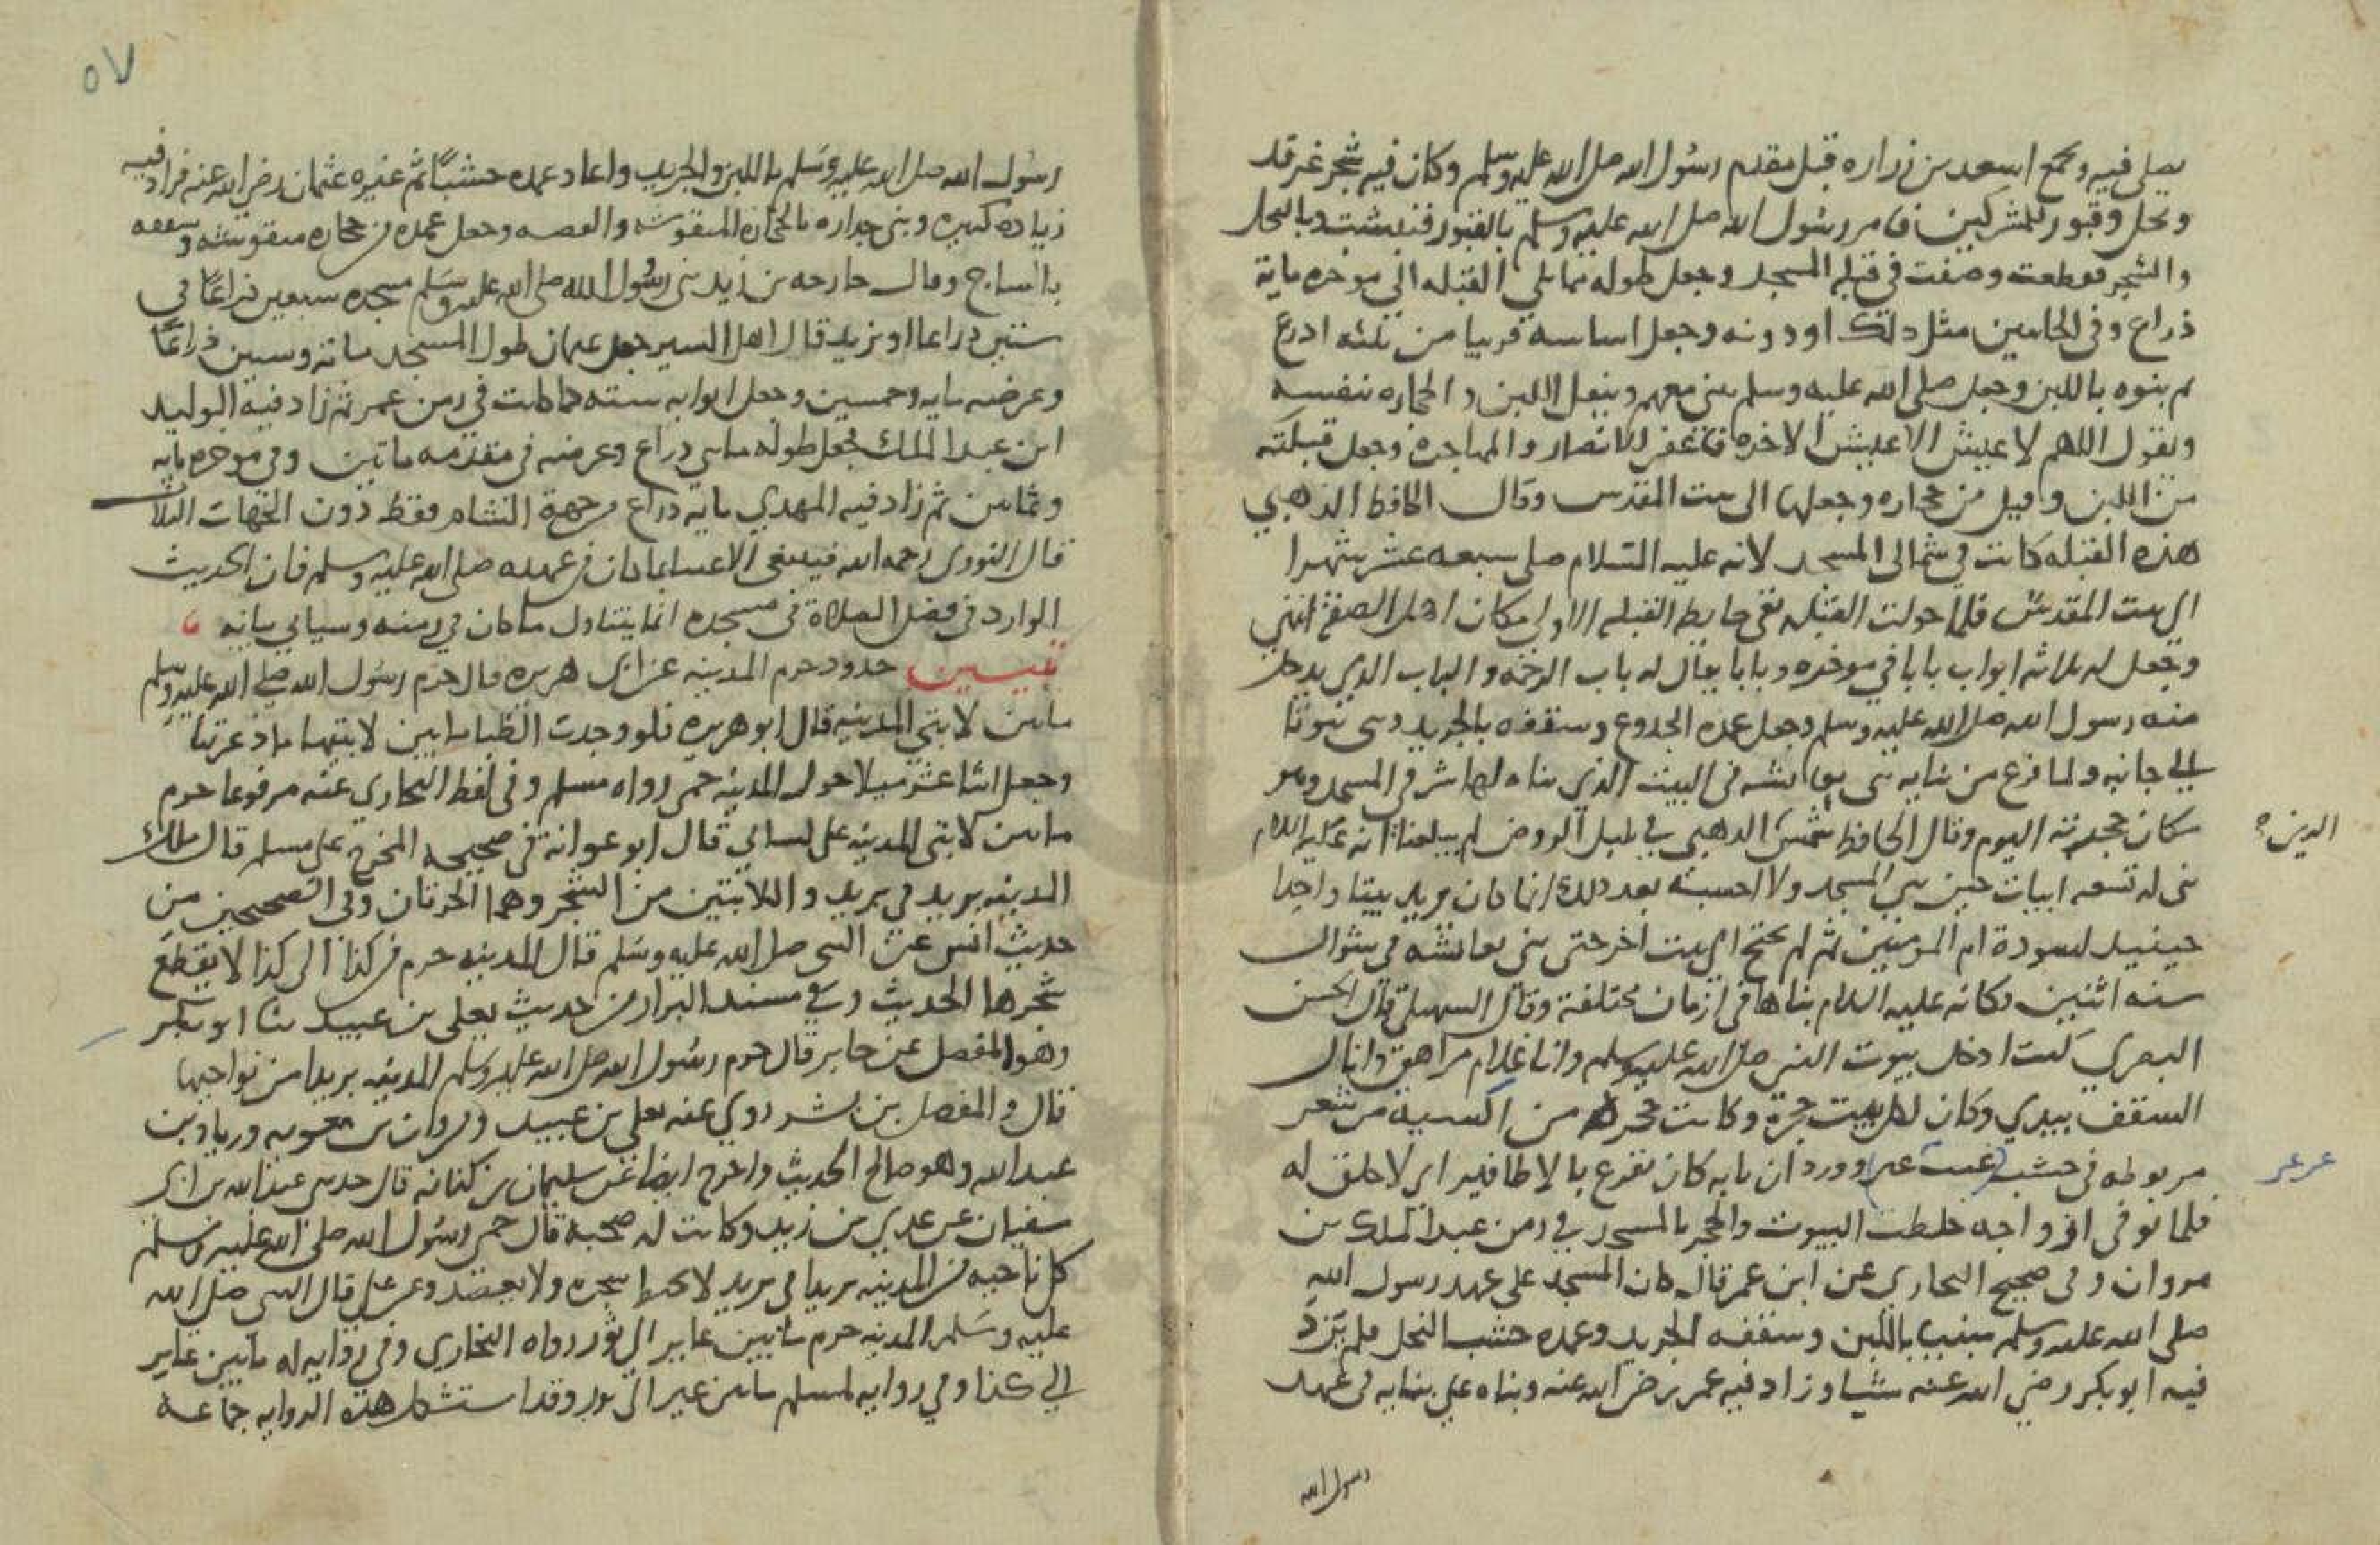 يصلى فيه ويجمع اسعد بن زراره قبل مقدم رسول الله صلى الله عليه وسلم وكان فيه شجر غرقد
ونخل وقبور للمشركين فامر رسول الله صلى الله عليه وسلم بالقبور فنبشت وبالنخل
والشجر فقطعت وصفت في قبلة المسجد وجعل طوله مما يلي القبله الى موخره ماية
ذراع وفي الجانبين مثل ذلك او دونه وجعل اساسه قريبا من ثلثه اذرع
ثم بنوه باللبن وجعل صلى الله عليه وسلم يبني معهم وينقل اللبن والحجاره بنفسه
ويقول اللهم لا عيش الا عيش الاخره فاغفر للانصار والمهاجره وجعل قبلته
من اللبن وقيل من حجاره وجعلها الى بيت المقدس وقال الحافظ الذهبي
هذه القبله كانت في شمالي المسجد لانه عليه السلام صلى سبعه عشر شهرا
الى بيت المقدس فلما حولت القبله بقى حايط القبله الاولى مكان اهل الصفة انتهى
وجعل له ثلاثه ابواب بابا في موخره وبابا يقال له باب الرحمة والباب الذي يدخل
منه رسول الله صلى الله عليه وسلم وجعل عمده الجذوع وسقفه بالجريد وبنى بيوتا
الي جانبه ولما فرغ من بنايه بنى بعائشه في البيت الذي بناه لها شرقي المسجد وهو
مكان حجرته اليوم وقال الحافظ شمس الذهبي في بلبل الروض لم يبلغنا انه عليه السلام
الدين
بنى له تسعه ابيات حين بنى المسجد ولا احسبه بعد ذلك انما كان يريد بيتا واحدا
حينيد لسودة ام المومنين ثم لم يحتج الى بيت اخر حتى بنى بعائشه في شوال
سنه اثنين وكانه عليه السلام بناها في ازمان مختلفة وقال السهيلي قال الحسن
البصري كنت ادخل بيوت النبى صلى الله عليه وسلم وانا غلام مراهق وانال
السقف بيدي وكان لكل بيت حجرة وكانت حجره من اكسية من شعر
مربوطه في خشب ووردان بابه كان يقرع بالاظافير اي لا حلق له
عرعر
فلما توفى ازواجه خلطت البيوت والحجر بالمسجد في زمن عبد الملك بن
مروان وفى صحيح البخاري عن ابن عمر قال كان المسجد على عهد رسول الله
صلى الله عليه وسلم مبنيا باللبن وسقفه الجريد وعمده خشب النخل فلم يزد
فيه ابو بكر رضي الله عنه شيا وزاد فيه عمر رضى الله عنه وبناه على بنايه في عهد
رسول الله
٥٧
رسول الله صلى الله عليه وسلم باللبن والجريد واعاد عمده خشبًا ثم غيره عثمان رضي الله عنه فزاد فيه
زياده كبيره وبنى جداره بالحجاره المنقوشه والقصه وجعل عمده من حجاره منقوشه وسقفه
بالساج وقال خارجه بن زيد بنى رسول الله صلى الله عليه وسلم مسجده سبعين ذراعًا في
ستين ذراعا او يزيد قال اهل السير جعل عثمان طول المسجد مائة وستين ذراعًا
وعرضه مايه وخمسين وجعل ابوابه سته كما كانت في زمن عمر ثم زاد فيه الوليد
ابن عبد الملك فجعل طوله مايتي ذراع وعرضه في مقدمه مائتين وفي موخره مايه
وثمانين ثم زاد فيه المهدي مايه ذراع من جهة الشام فقط دون الجهات الثلاث
قال النووي رحمه الله فينبغى الاعتناء بما كان في عهده صلى الله عليه وسلم فان الحديث
الوارد في فضل الصلاة في مسجده انما يتناول ما كان في زمنه وسياتي بيانه
حدود حرم المدينه عن ابى هريره قال حرم رسول الله صلى الله عليه وسلم
مابين لابتي المدينه قال ابو هريره فلو وجدت الظبا مابين لابتيها ما ذعرتها
وجعل اثنا عشر ميلا حول المدينه حمى رواه مسلم وفي لفظ البخاري عنه مرفوعا حرم
مابين لابتي المدينه على لساني قال ابو عوانة في صحيحه المخرج على مسلم قال مالك
المدينه بريد في بريد واللابتين من الشجر وهما الحرتان وفى الصحيحين من
حديث انس عن النبى صلى الله عليه وسلم قال المدينه حرم من كذا الى كذا لا يقطع
شجرها الحديث وفي مسند البزار من حديث يعلى بن عبيد ثنا ابو بكر
وهو المفضل عن جابر قال حرم رسول الله صلى الله عليه وسلم المدينه بريدا من نواحيها
قال والمفضل بن مبشر روي عنه يعلى بن عبيد ومروان بن معويه وزياد بن
عبد الله وهو صالح الحديث واخرج ايضا عن سليمان بن كنانه قال حدثنى عبد الله بن ابى
سفيان عن عدي بن زيد وكانت له صحبة قال حمى رسول الله صلى الله عليه وسلم
كل ناحيه من المدينه بريدا في بريد لا يخبط شجره ولا يعضد وعن على قال النبى صلى الله
عليه وسلم المدينه حرم مابين عاير الي ثور رواه البخاري وفي روايه له مابين عاير
الي كذا وفي روايه لمسلم مابين عير الى ثور وقد استشكل هذه الروايه جماعه